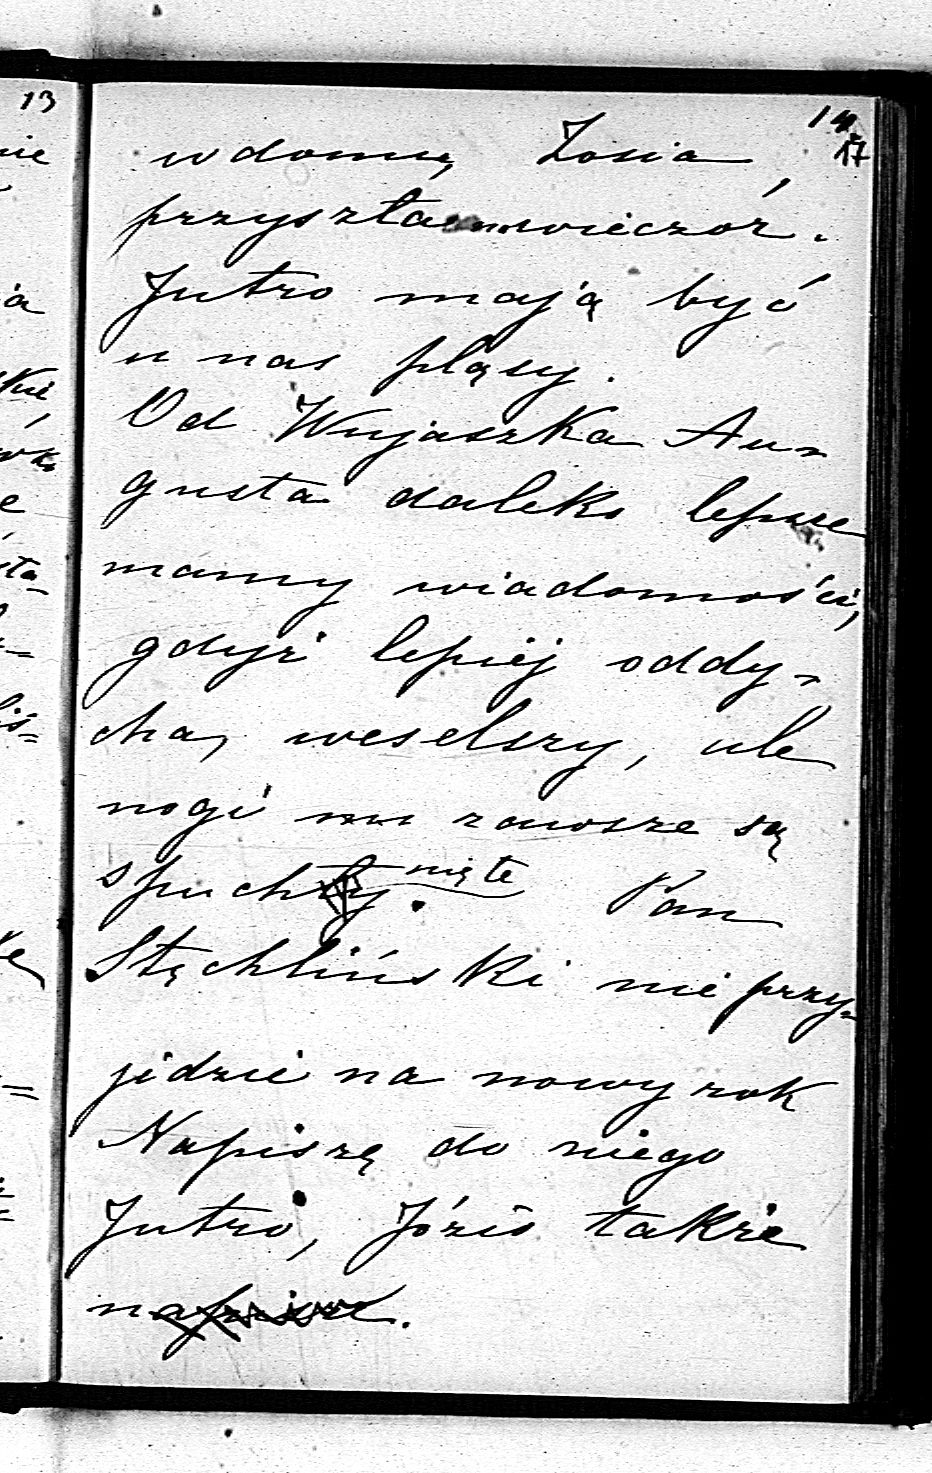 13
14
17
w domu, Zosia
przyszła wieczór.
Jutro mają być
u nas pląsy.
Od Wujaszka Au-
gusta daleko lepsze
mamy wiadomości,
gdyż lepiéj oddy-
cha, weselszy, ale
nogi mu zawsze są
spuchnięte. Pan
Stęchliński nie przy-
jidzie na nowy rok
Napiszę do niego
Jutro, Józio także
napisze.